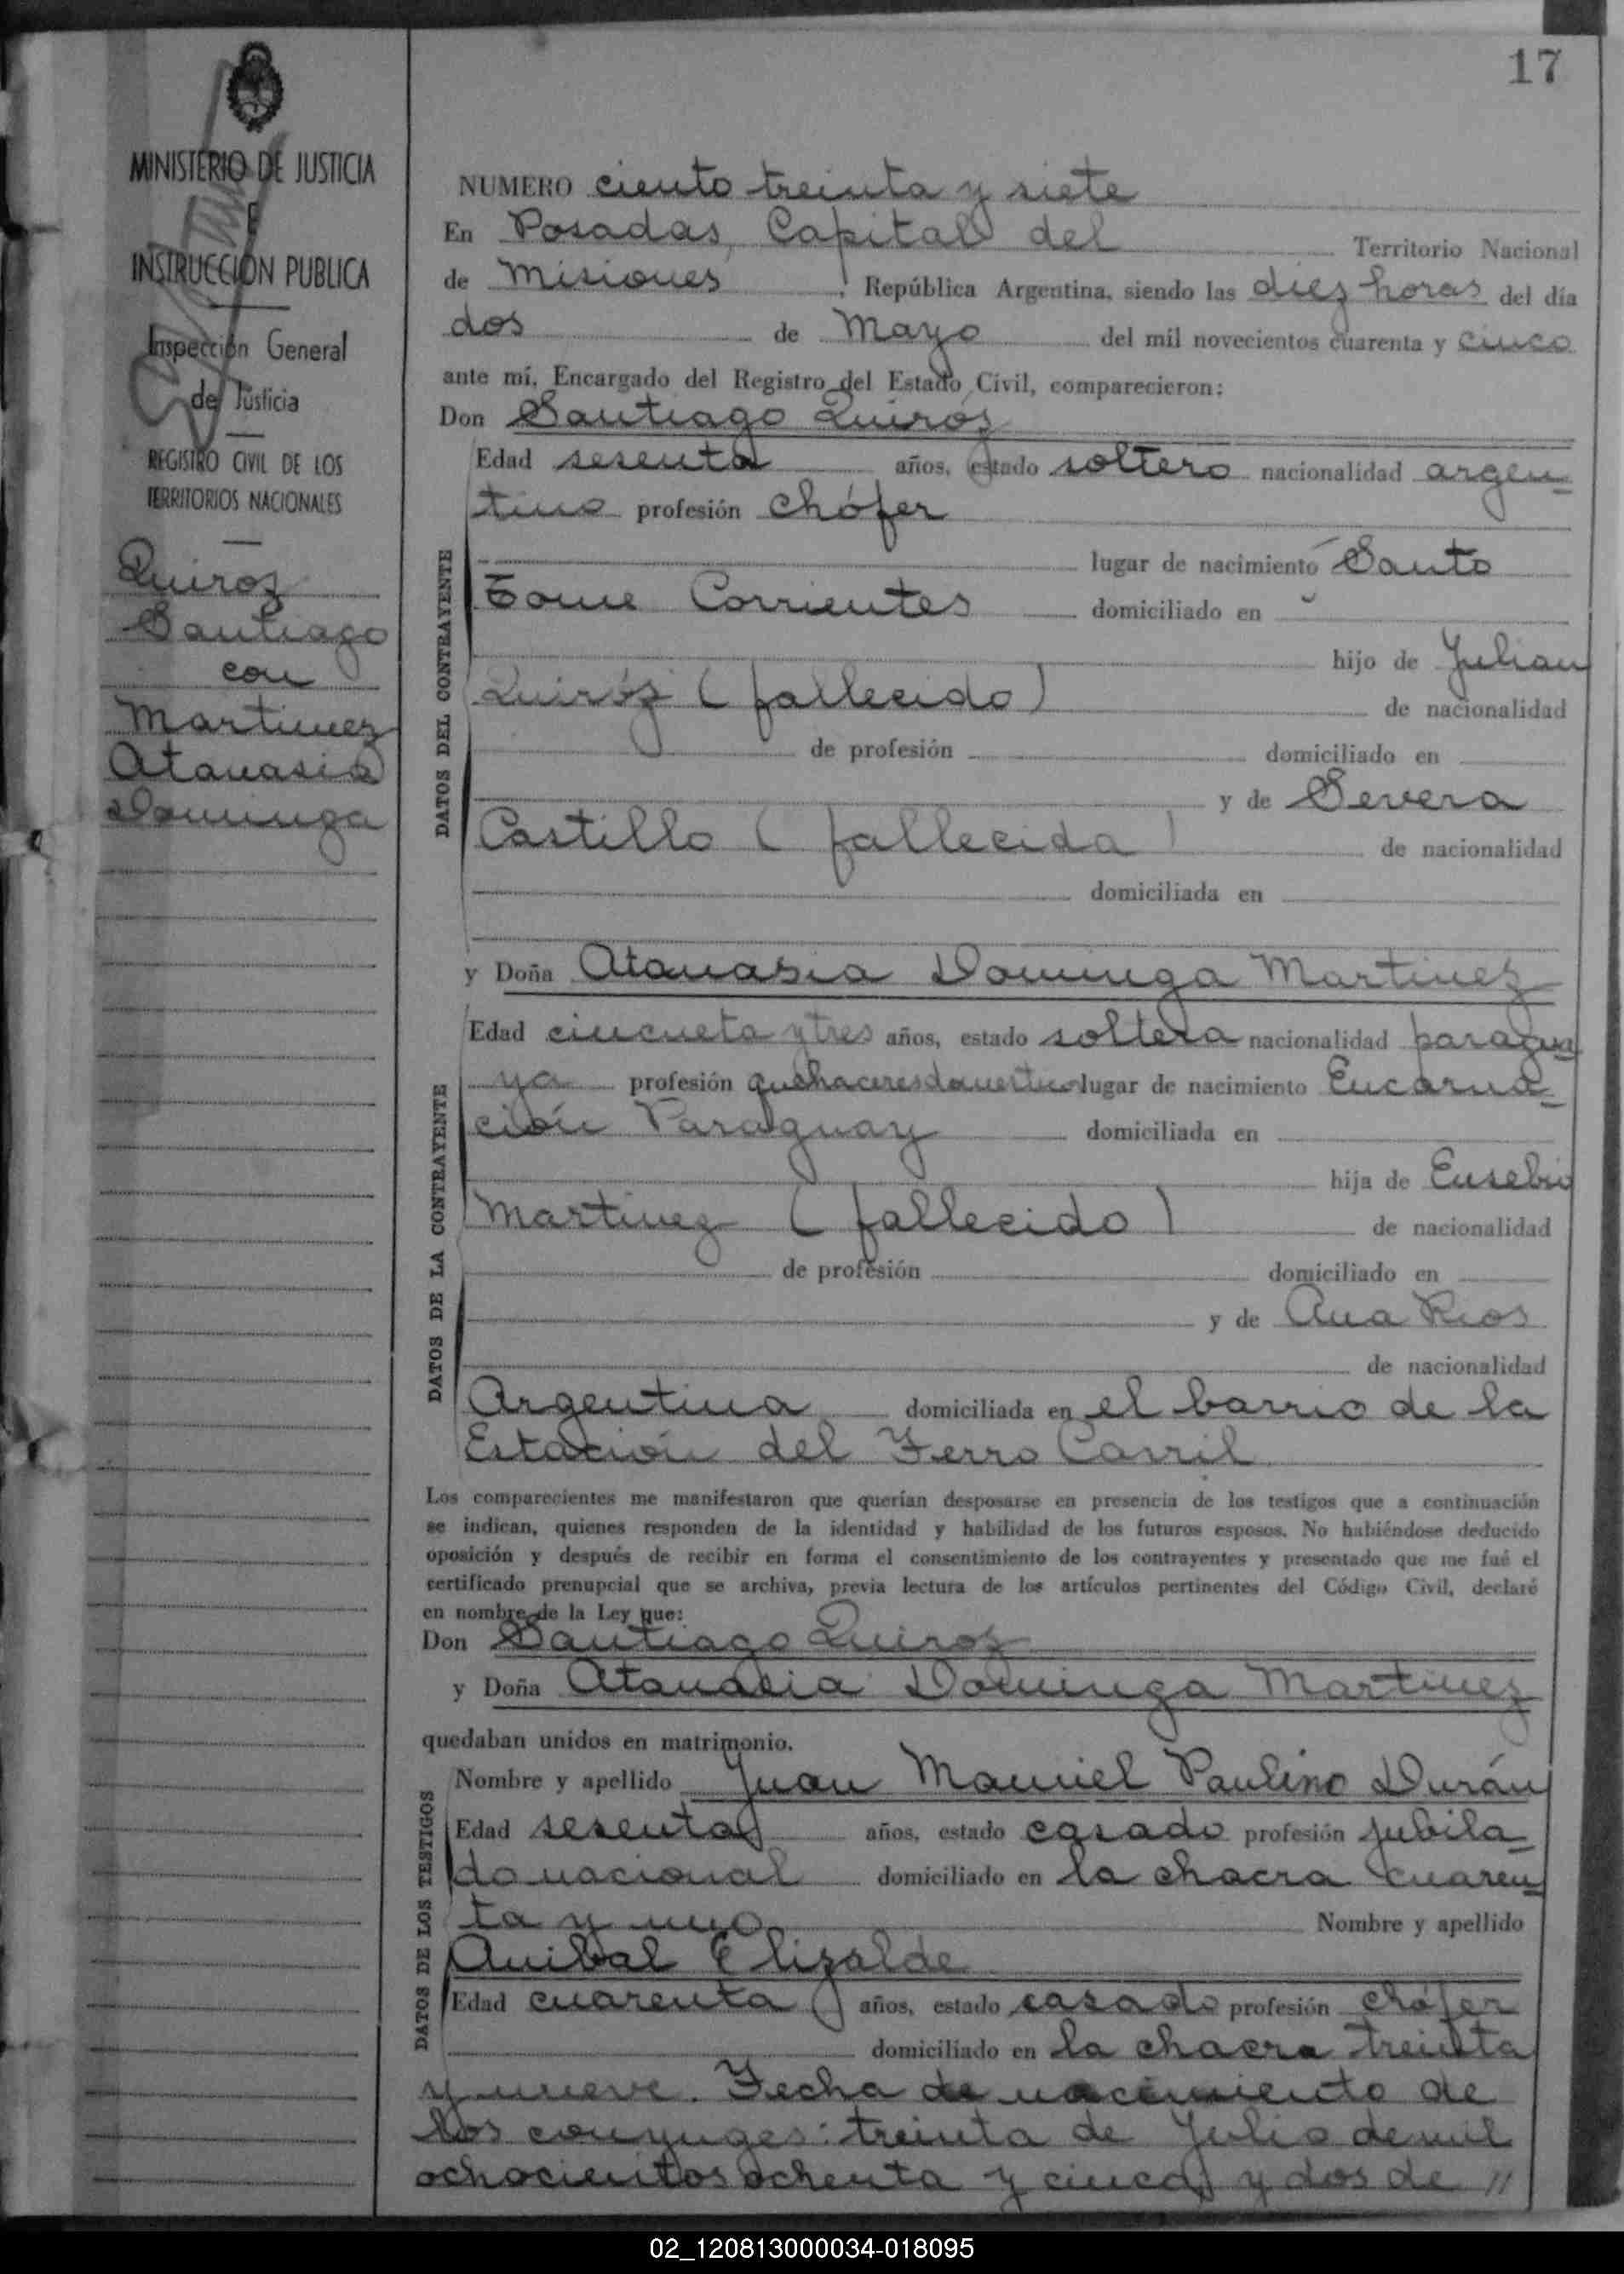 17
MINISTERIO DE JUSTICIA
E
INSTRUCCIÓN PUBLICA
Inspección General
de Justicia
REGISTRO CIVIL DE LOS
TERRITORIOS NACIONALES
Quiroz
Santiago
con
Martinez
Atanasia
Dominga
NUMERO ciento treinta y siete
En Posadas, Capital del Territorio Nacional
de Misiones, República Argentina, siendo las diez horas del día
dos de Mayo del mil novecientos cuarenta y cinco
ante mí, Encargado del Registro del Estado Civil, comparecieron:
Don Santiago Quiróz
DATOS DEL CONTRAYENTE
Edad sesenta años, estado soltero nacionalidad argen-
tino profesión chófer
lugar de nacimiento Santo
Tome Corrientes domiciliado en
hijo de Julian
Quiróz (fallecido) de nacionalidad
de profesión domiciliado en
y de Severa
Castillo (fallecida) de nacionalidad
domiciliada en
y Doña Atanasia Dominga Martinez
DATOS DE LA CONTRAYENTE
Edad cincueta y tres años, estado soltera nacionalidad paragua
ya profesión quehaceres domestico lugar de nacimiento Encarna-
ción Paraguay domiciliada en
hija de Eusebio
Martinez (fallecido) de nacionalidad
de profesión domiciliado en
y de Ana Rios
de nacionalidad
Argentina domiciliada en el barrio de la
Estación del Ferro Carril
Los comparecientes me manifestaron que querían desposarse en presencia de los testigos que a continuación
se indican, quienes responden de la identidad y habilidad de los futuros esposos. No habiéndose deducido
oposición y después de recibir en forma el consentimiento de los contrayentes y presentado que me fué el
certificado prenupcial que se archiva, previa lectura de los artículos pertinentes del Código Civil, declaré
en nombre de la Ley que:
Don Santiago Quiroz
y Doña Atanasia Dominga Martinez
quedaban unidos en matrimonio.
DATOS DE LOS TESTIGOS
Nombre y apellido Juan Manuel Paulino Durán
Edad sesenta años, estado casado profesión jubila-
do nacional domiciliado en la chacra cuaren
ta y uno Nombre y apellido
Anibal Elizalde
Edad cuarenta años, estado casado profesión chófer
domiciliado en la chacra treinta
y nueve. Fecha de nacimiento de
los conyuges: treinta de Julio de mil
ochocientos ochenta y cinco y dos de //
02_120813000034-018095